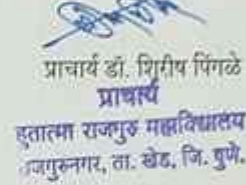 प्राचार्य डॉ. शिरीष पिंगळे
प्राचार्य
हुतात्मा राजगुरु महाविद्यालय
राजगुरुनगर, ता. खेड, जि. पुणे.